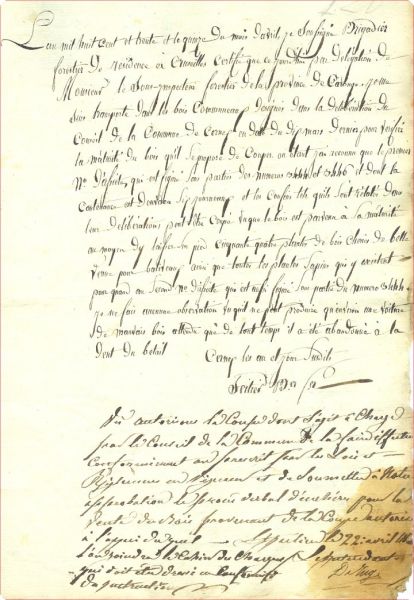 L'an mil huit cent et trente et le quinze du mois d'avril, je soussigné Brigadier
forestier de résidence à Cruseilles certifie que ce jourd'hui par délégation de
Monsieur le Sous-inspecteur forestier de la province de Carouge je me
suis transporté dans les bois Communaux désignés dans la délibération du
Conseil de la Commune de Cernex en date du dix mars dernier pour vérifier
la maturité du bois qu'il se propose de Couper ou étant j'ai reconnu que le premier
N° désisté, qui est figuré sous partie des numéros et dont la
Contenance est d'environ six journaux et les confins tels qu'ils sont établis dans
leur délibération peut être coupé vu que le bois est parvenu à sa maturité
au moyen d'y laisser sur pied Cinquante quatre plantes de bois choisi de belle
venue pour baliveaux ainsi que toutes les plantes sapins qui y existent
pour quant au second N° désisté qui est aussi figuré sous partie du numéro
je ne fais aucune observation vu qu'il ne peut produire qu'environ une voiture
de mauvais bois attendu que de tout temps il a été abandonné à la
dent du bétail
Cernex les an et jour susdits
Vu autorisons la Coupe dont s'agit à Charge
par le Conseil de la Commune de la faire effectuer
Conformément au prescrit par les Loix et
Réglemens en vigueur et de soumettre à notre
approbation le procès verbal d'enchère pour la
vente du bois provenant de la Coupe autorisée
St Julien le 22 avril
Le joindre le Cahier de Charges L'intendant
qui doit être dressé en conformité
des instructions